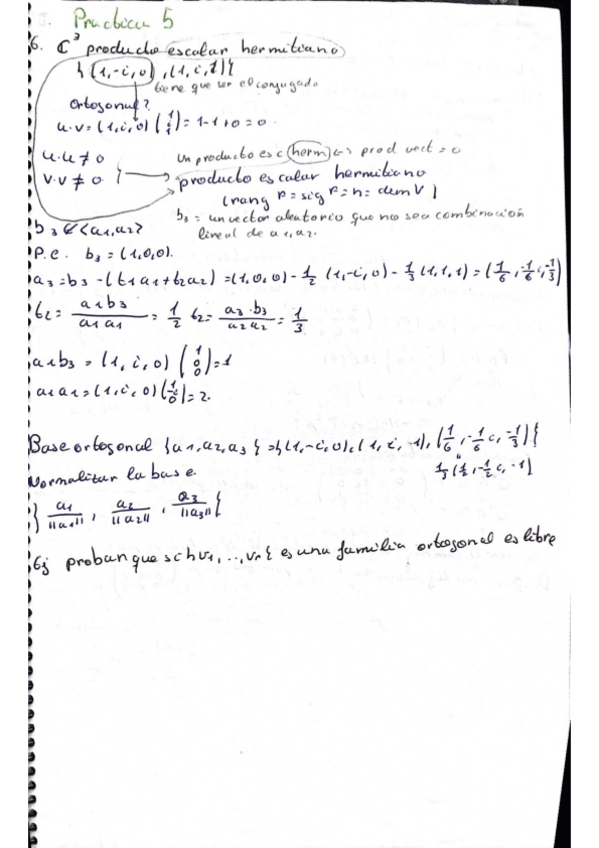 Practica 5
6. C³ producto escalar hermitiano
{(1,-i,0),(1,i,1)}
tiene que ser el conjugado
Ortogonal?
u·v=(1,i,0)(1 i 1)=1-1+0=0
u·u≠0
v·v≠0
Un producto esc herm ↔ prod vect = 0
producto escalar hermitiano
(rang = sig = n = dim V)
b3 = un vector aleatorio que no sea combinación
lineal de a1,a2.
b3 ∉ <a1,a2>
P.e. b3 = (1,0,0).
a3=b3-(t1a1+t2a2)=(1,0,0)-1/2(1,-i,0)-1/3(1,i,1)=(1/6,-1/6 i,-1/3)
t2= a1b3/a1a1 = 1/2 t2= a2·b3/a2a2 = 1/3
a1b3=(1,i,0)(1 0 0)=1
a1a1=(1,i,0)(1 -i 0)=2.
Base ortogonal {a1,a2,a3}={(1,-i,0),(1,i,-1),(1/6,-1/6 i,-1/3)}
1/3(1/2,-1/2 i,-1)
Normalizar la base
{a1/||a1||, a2/||a2||, a3/||a3||}
Ej probar que si {v1,..,vr} es una familia ortogonal es libre